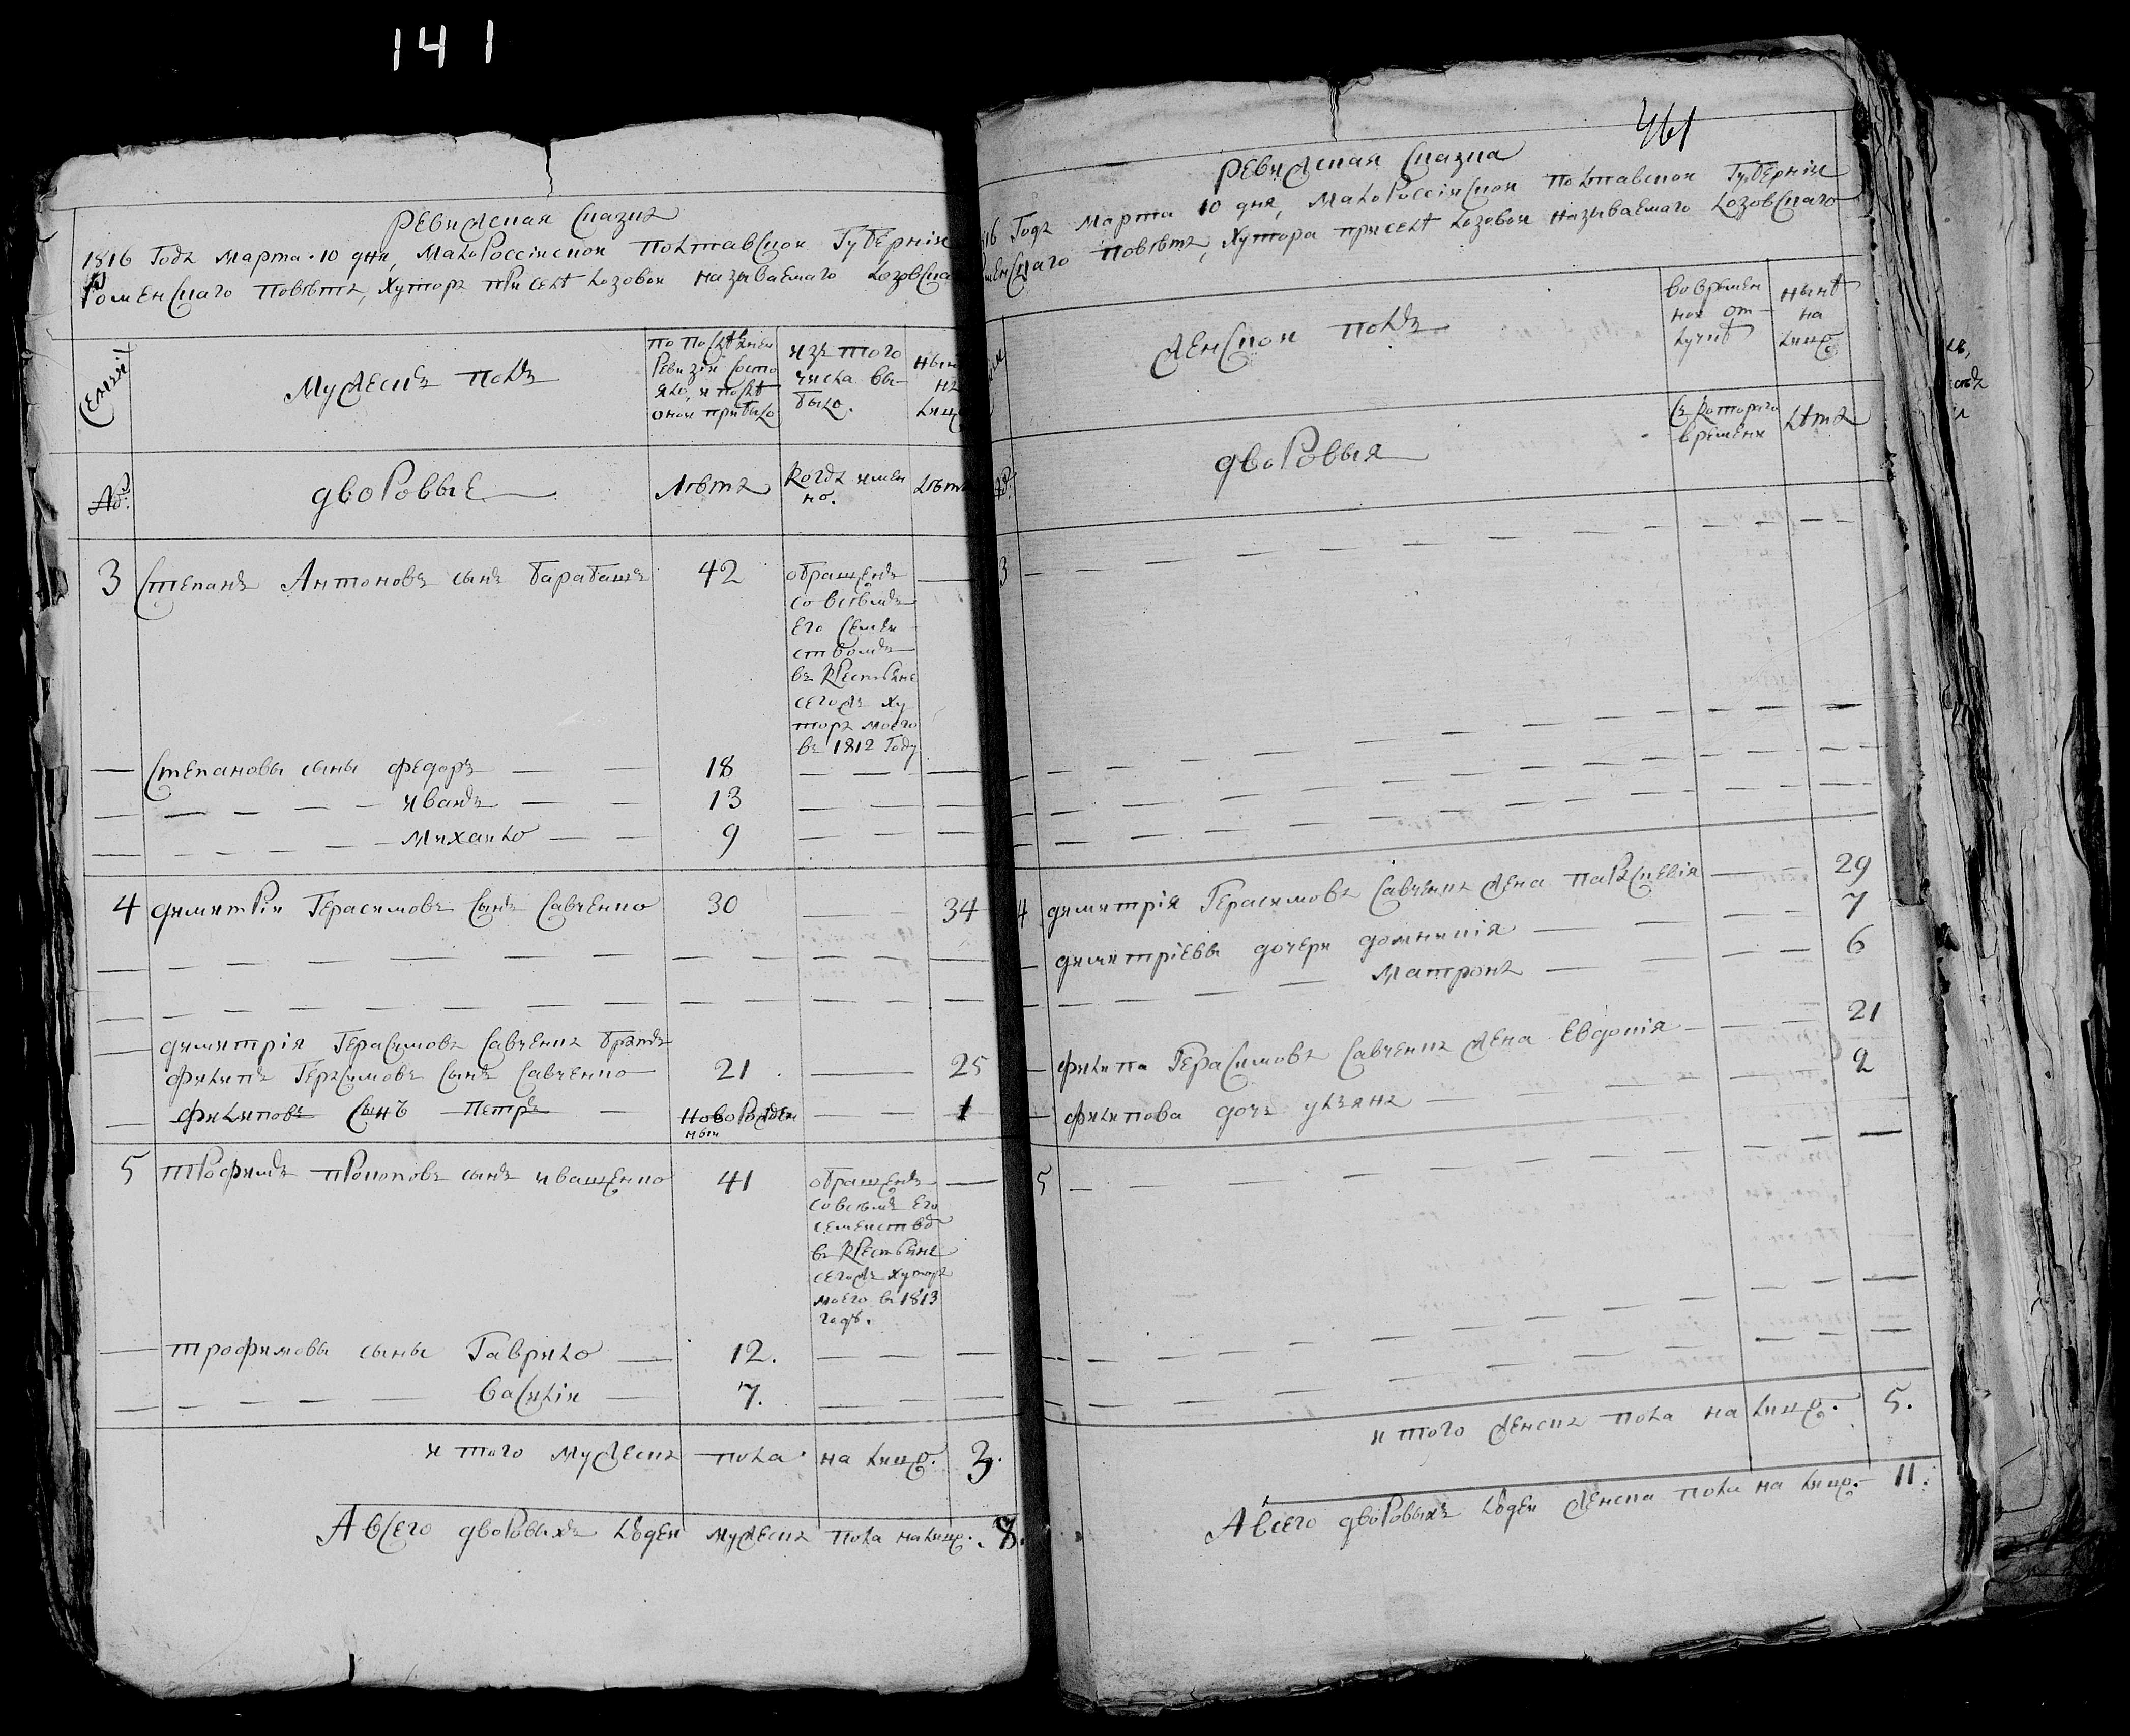 141
Ревижская сказка
1816 Года марта 10 дня, Малороссійской Полтавской Губерніи
Роменскаго повѣта, Хутора при селѣ Лозовой называемаго Лозовска
Семьи
Мужескъ полъ
по послѣдней
Ревизіи состо
яло, и послѣ
оной прибыло
изъ того
числа вы-
было.
ны
на
лиц
№
дворовые
Лѣта
Когда имен
но.
Лѣта
3 Степанъ Антоновъ сынъ барабашъ 42 обращенъ —
со всѣмъ
его семей
ствомъ
въ Крестьяне
сегожъ ху
тора моего
въ 1812 Году
— Степановы сыны федоръ — — 18 — — —
— — — — иванъ — — 13 — — —
— — — — михайло — — 9 — — —
4 димитрій Герасимовъ Сынъ Савченко 30 — — 34
димитрія Герасимова Савченка братъ
филипъ Герасимовъ Сынъ Савченко 21 — 25
— филиповъ Сынъ Петръ — новорожден — — 1
ный
5 трофимъ прокоповъ сынъ иващенко 41 обращенъ —
со всѣмъ его
семейство
въ Крестьяне
сегожъ хутора
моего въ 1813
годѣ.
— трофимовы сыны Гаврило — 12. — — —
— — — — Василій — 7. — — —
и того мужеска пола на лицо. 3.
А всего дворовыхъ людей мужеска пола на лицо. 8.
461
Ревижская Сказка
16 Года марта 10 дня, Малороссійской Полтавской Губерніи
менскаго повѣта, Хутора при селѣ Лозовой называемаго Лозовскаго
женской полъ
во времен
ной от-
лучкѣ
нынѣ
на
лицо
№
дворовыя
Съ котораго
времени
лѣта
3
4 димитрія Герасимова Савченка жена параскевія — — 29
димитріевы дочери домникія — — — 7
— — — — матрона — — — 6
— филипа Герасимова Савченка жена Евдокія — — — 21
— филипова дочь уляна — — 2
5
и того женска пола на лицо. 5.
А всего дворовыхъ людей женска пола на лицо. 11.